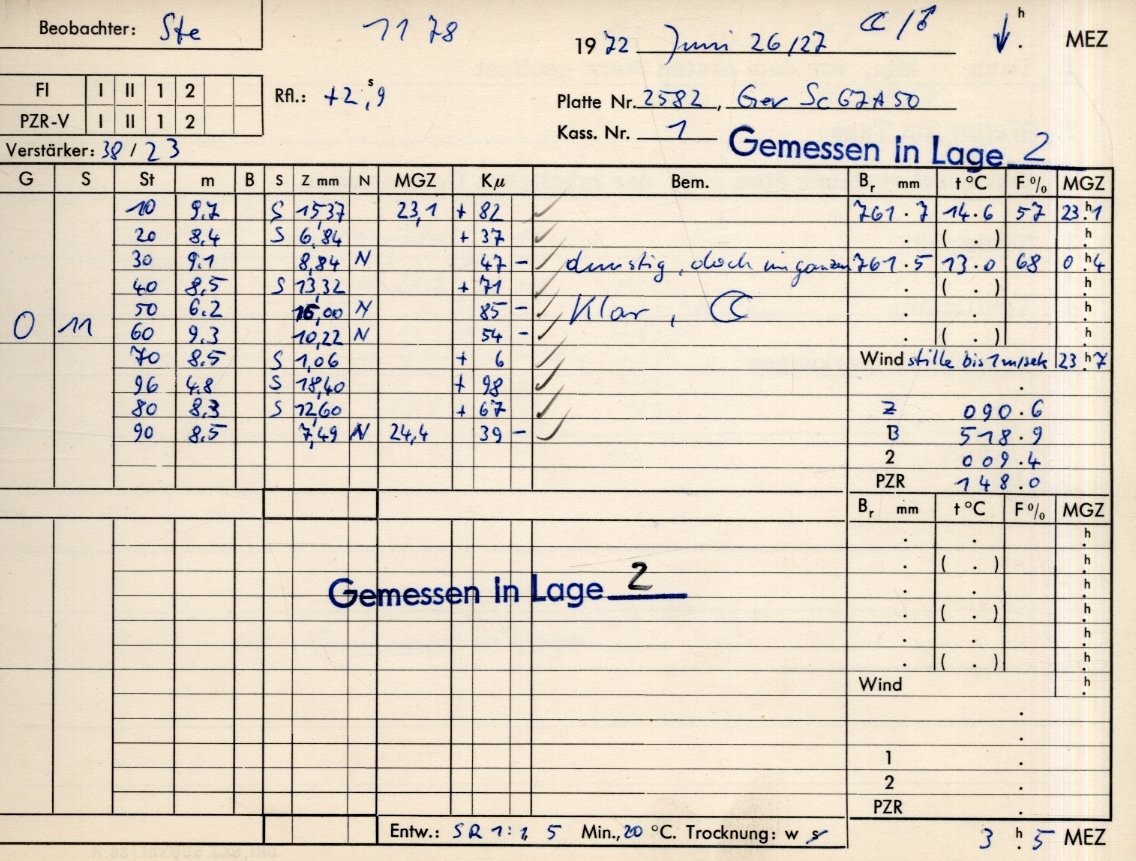 Beobachter: Ste 1178 1972 Juni 26/27 h . MEZ
FI I II 1 2 Rfl.: +2,s9 Platte Nr. 2582, Gev Sc67A50
PZR-V I II 1 2 Kass. Nr. 1
Verstärker: 38 / 23 Gemessen in Lage 2
G S St m B S Z mm N MGZ Kμ Bem. Br mm t °C F % MGZ
10 9,7 S 15,37 23,1 + 82 761.7 14.6 57 23.h1
20 8,4 S 6,84 + 37 . ( . ) .h
30 9.1 8,84 N 47 – dunstig, doch im ganzen 761.5 13.0 68 0.h4
40 8,5 S 13,32 + 71 . ( . ) .h
50 6.2 16,00 N 85 – Klar, ☾ . .h
0 11 60 9,3 10,22 N 54 – . ( . ) .h
70 8.5 S 1,06 + 6 Wind stille bis 1 m/sek 23.h7
96 4.8 S 18,40 + 98 .
80 8,3 S 12,60 + 67 Z 090.6
90 8,5 7,49 N 24,4 39 – B 518.9
2 009.4
PZR 148.0
Br mm t °C F % MGZ
. . .h
. ( . ) .h
Gemessen in Lage 2 . . .h
. ( . ) .h
. . .h
. ( . ) .h
Wind .h
.
.
1 .
2 .
PZR .
Entw.: SR 1:1 5 Min., 20 °C. Trocknung: w s 3 .h 5 MEZ